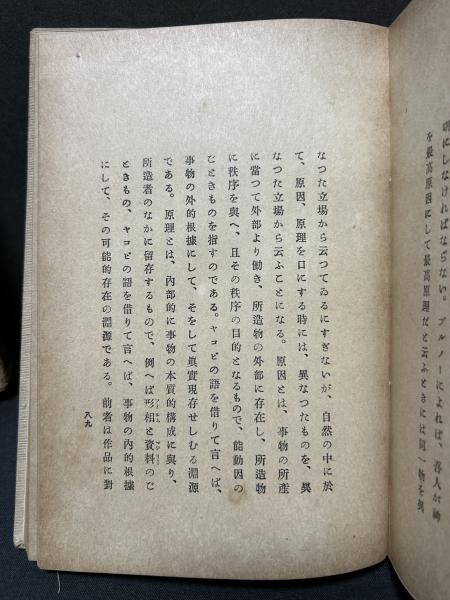 明にしなければならない。ブルノーによれば、吾人が神
を最高原因にして最高原理だと云ふときには同一物を異
なつた立場から云つてゐるにすぎないが、自然の中に於
て、原因、原理を口にする時には、異なつたものを、異
なつた立場から云ふことになる。原因とは、事物の所産
に當つて外部より働き、所造物の外部に存在し、所造物
に秩序を與へ、且その秩序の目的となるもので、能動因の
ごときものを指すのである。ヤコビの語を借りて言へば、
事物の外的根據にして、そをして眞實現存せしむる淵源
である。原理とは、內部的に事物の本質的構成に與り、
所造者のなかに留存するもので、例へば形相と資料のご
ときもの、ヤコビの語を借りて言へば、事物の內的根據
にして、その可能的存在の淵源である。前者は作品に對
八九